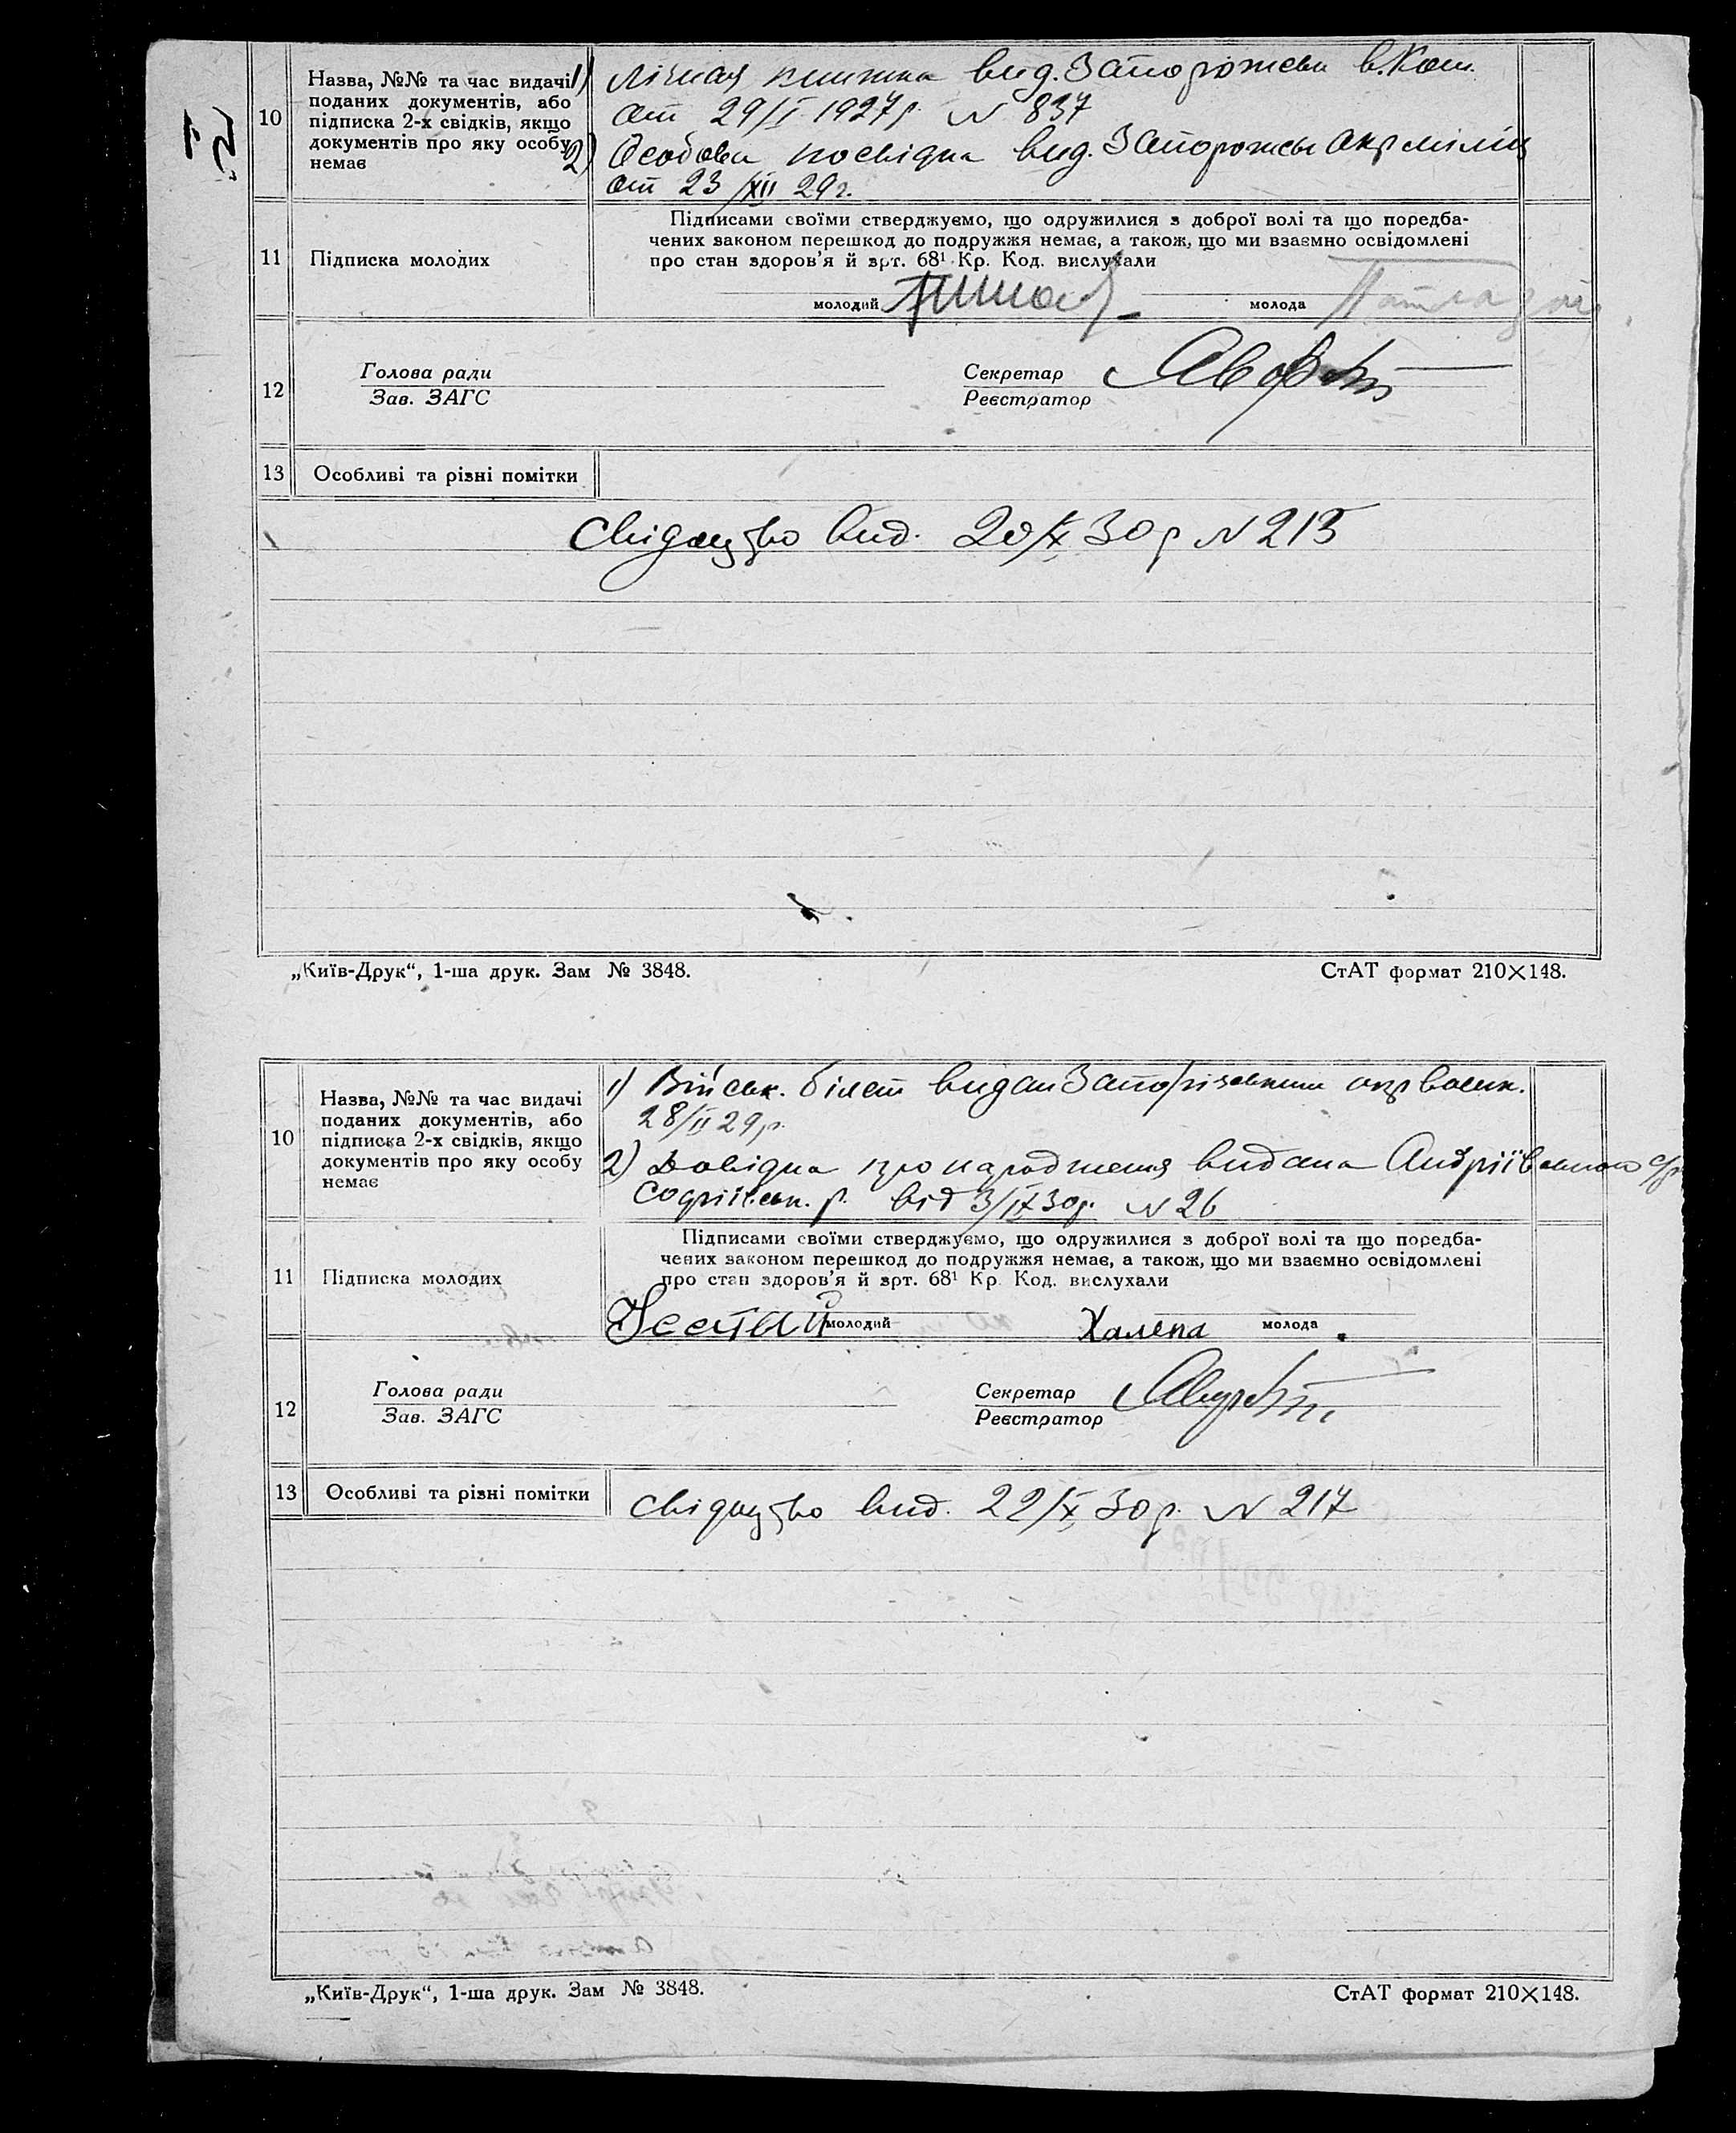 10
Назва, №№ та час видачі
поданих документів, або
підписка 2-х свідків, якщо
документів про яку особу
немає
1) Лічная книжка вид. Запорожськ в. Ком.
от 29/I 1927 р. N 837
2) Особова посвідка вид. Запорожськ окр міліц
от 23/XII 29 г.
11
Підписка молодих
Підписами своїми стверджуємо, що одружилися з доброї волі та що поредба-
чених законом перешкод до подружжя немає, а також, що ми взаємно освідомлені
про стан здоров'я й арт. 68¹ Кр. Код. вислухали
молодий
молода
12
Голова ради
Зав. ЗАГС
Секретар
Реєстратор
13
Особливі та різні помітки
Свідоцтво вид. 20/X 30 р N 215
„Київ-Друк“, 1-ша друк. Зам № 3848.
СтАТ формат 210×148.
10
Назва, №№ та час видачі
поданих документів, або
підписка 2-х свідків, якщо
документів про яку особу
немає
1) Військ. білет видан Запорізьким окрвоєнк.
28/II 29 р.
2) Довідка про народження видана Андріївською с/р
Софіївськ. р. від 3/IX 30 р. N 26
11
Підписка молодих
Підписами своїми стверджуємо, що одружилися з доброї волі та що поредба-
чених законом перешкод до подружжя немає, а також, що ми взаємно освідомлені
про стан здоров'я й арт. 68¹ Кр. Код. вислухали
молодий
Халепа молода
12
Голова ради
Зав. ЗАГС
Секретар
Реєстратор
13
Особливі та різні помітки
Свідоцтво вид. 22/X 30 р. N 217
„Київ-Друк“, 1-ша друк. Зам № 3848.
СтАТ формат 210×148.